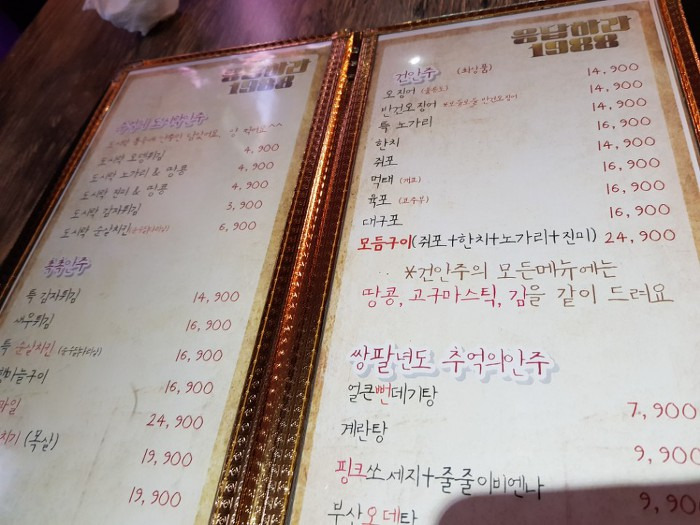 응답하라
1988
도시락 오뎅튀김 4,900
도시락 노가리 & 땅콩 4,900
도시락 진미 & 땅콩 4,900
도시락 감자튀김 3,900
도시락 순살치킨 6,900
특 감자튀김 14,900
새우튀김 16,900
특 순살치킨 16,900
16,900
24,900
(목살) 19,900
19,900
응답하라
1988
건안주 (최상품)
오징어 14,900
반건오징어 14,900
특 노가리 14,900
한치 16,900
쥐포 14,900
먹태 16,900
육포 16,900
대구포 16,900
모듬구이(쥐포+한치+노가리+진미) 24,900
*건안주의 모든메뉴에는
땅콩, 고구마스틱, 김을 같이 드려요
쌍팔년도 추억의안주
얼큰뻔데기탕 7,900
계란탕 9,900
핑크쏘세지+줄줄이비엔나 9,90
부산오뎅탕